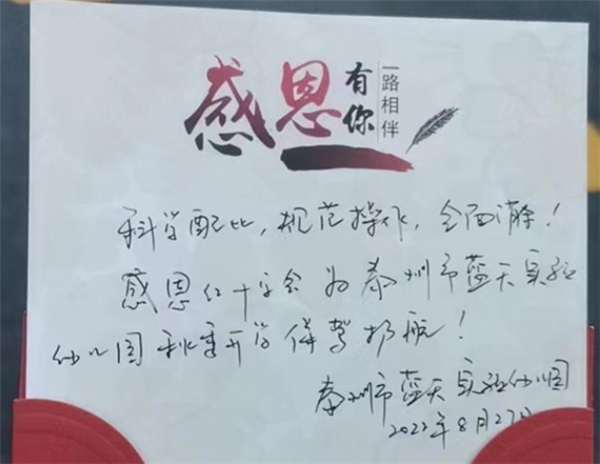 感恩
有你
一路相伴
科学配比，规范操作，全面消除！
感恩红十字会为泰州市蓝天实验
幼儿园秋季开学保驾护航！
泰州市蓝天实验幼儿园
2022年8月27日